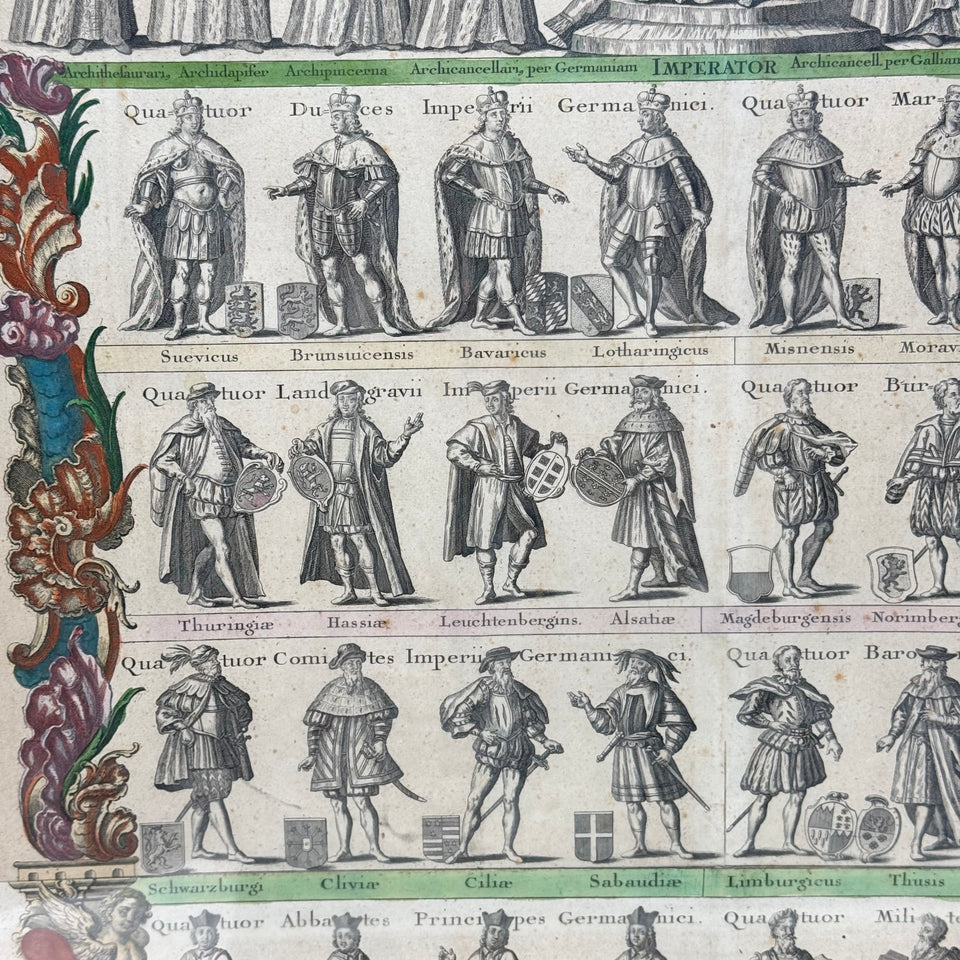 Archithesaurari, Archidapifer Archipincerna Archicancellari, per Germaniam IMPERATOR Archicancell. per Gallian
Qua=tuor Du=ces Imperii Germanici. Quatuor Mar-
Suevicus Brunsuicensis Bavaricus Lotharingicus Misnensis Moravi
Quatuor Landgravii Imperii Germanici. Quatuor Bur-
Thuringiæ Hassiæ Leuchtenbergins. Alsatiæ Magdeburgensis Norimberg
Quatuor Comites Imperii Germanici. Quatuor Baro
Schwarzburgi Cliviæ Ciliæ Sabaudiæ Limburgicus Thusis
Quatuor Abbates Principes Germanici. Quatuor Milite